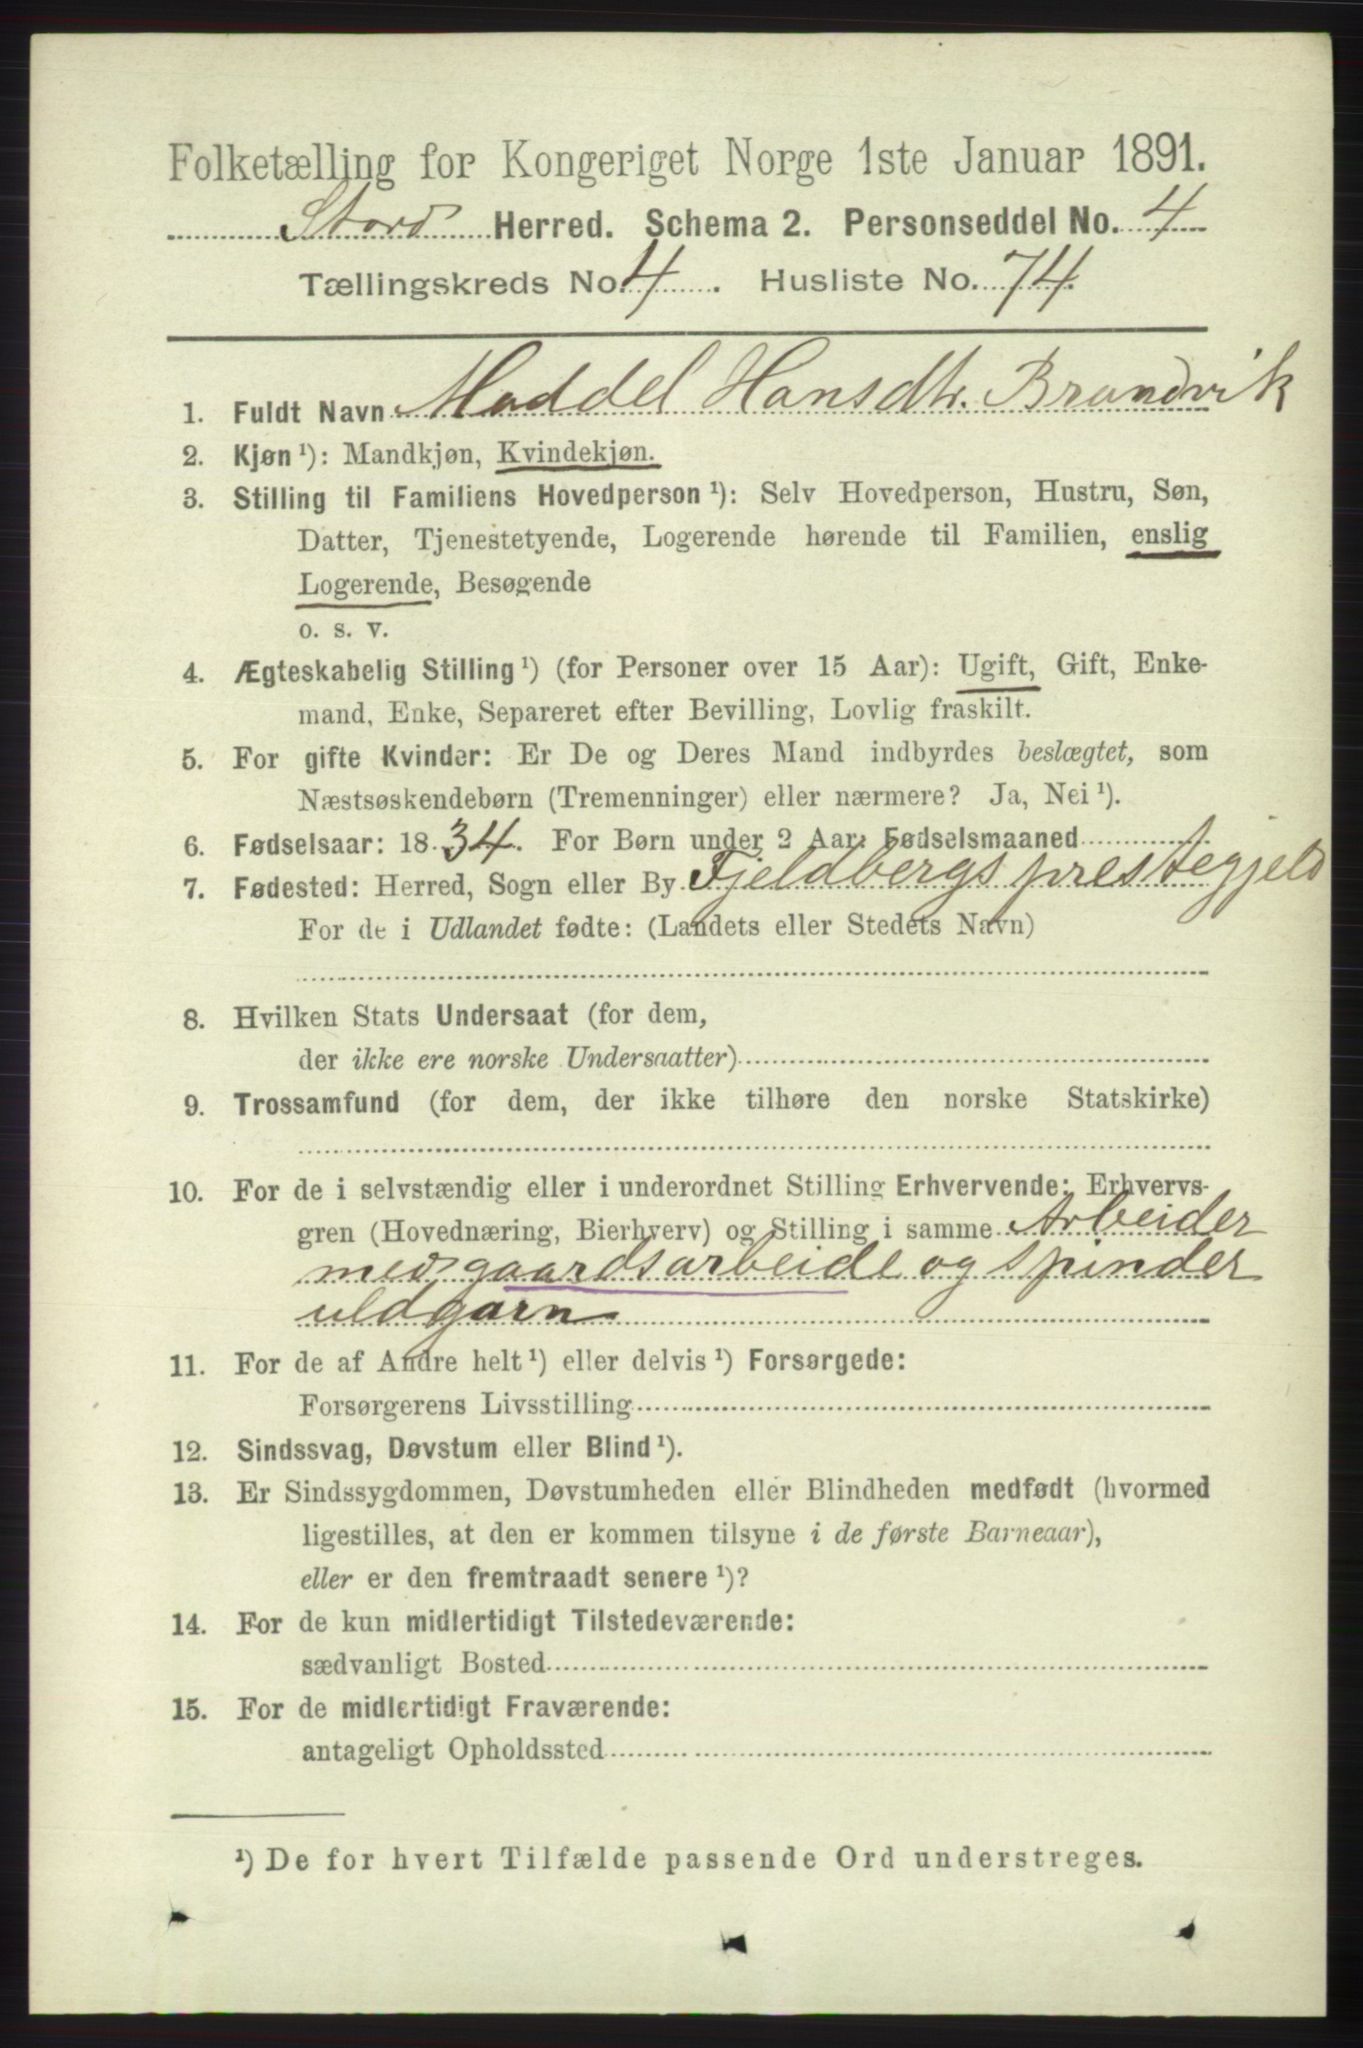 Folketælling for Kongeriget Norge 1ste Januar 1891.
Stord Herred. Schema 2. Personseddel No. 4
Tællingskreds No. 4. Husliste No. 74.
1. Fuldt Navn Maddel Hansdtr. Brandvik
2. Kjøn ¹): Mandkjøn, Kvindekjøn.
3. Stilling til Familiens Hovedperson ¹): Selv Hovedperson, Hustru, Søn,
Datter, Tjenestetyende, Logerende hørende til Familien, enslig
Logerende, Besøgende
o. s. v.
4. Ægteskabelig Stilling ¹) (for Personer over 15 Aar): Ugift, Gift, Enke-
mand, Enke, Separeret efter Bevilling, Lovlig fraskilt.
5. For gifte Kvinder: Er De og Deres Mand indbyrdes beslægtet, som
Næstsøskendebørn (Tremenninger) eller nærmere? Ja, Nei ¹).
6. Fødselsaar: 1834. For Børn under 2 Aar: Fødselsmaaned
7. Fødested: Herred, Sogn eller By Fjeldbergs prestegjeld
For de i Udlandet fødte: (Landets eller Stedets Navn)
8. Hvilken Stats Undersaat (for dem,
der ikke ere norske Undersaatter)
9. Trossamfund (for dem, der ikke tilhøre den norske Statskirke)
10. For de i selvstændig eller i underordnet Stilling Erhvervende: Erhvervs-
gren (Hovednæring, Bierhverv) og Stilling i samme Arbeider
med gaardsarbeide og spinder
uldgarn
11. For de af Andre helt ¹) eller delvis ¹) Forsørgede:
Forsørgerens Livsstilling
12. Sindssvag, Døvstum eller Blind ¹).
13. Er Sindssygdommen, Døvstumheden eller Blindheden medfødt (hvormed
ligestilles, at den er kommen tilsyne i de første Barneaar),
eller er den fremtraadt senere ¹)?
14. For de kun midlertidigt Tilstedeværende:
sædvanligt Bosted
15. For de midlertidigt Fraværende:
antageligt Opholdssted
¹) De for hvert Tilfælde passende Ord understreges.